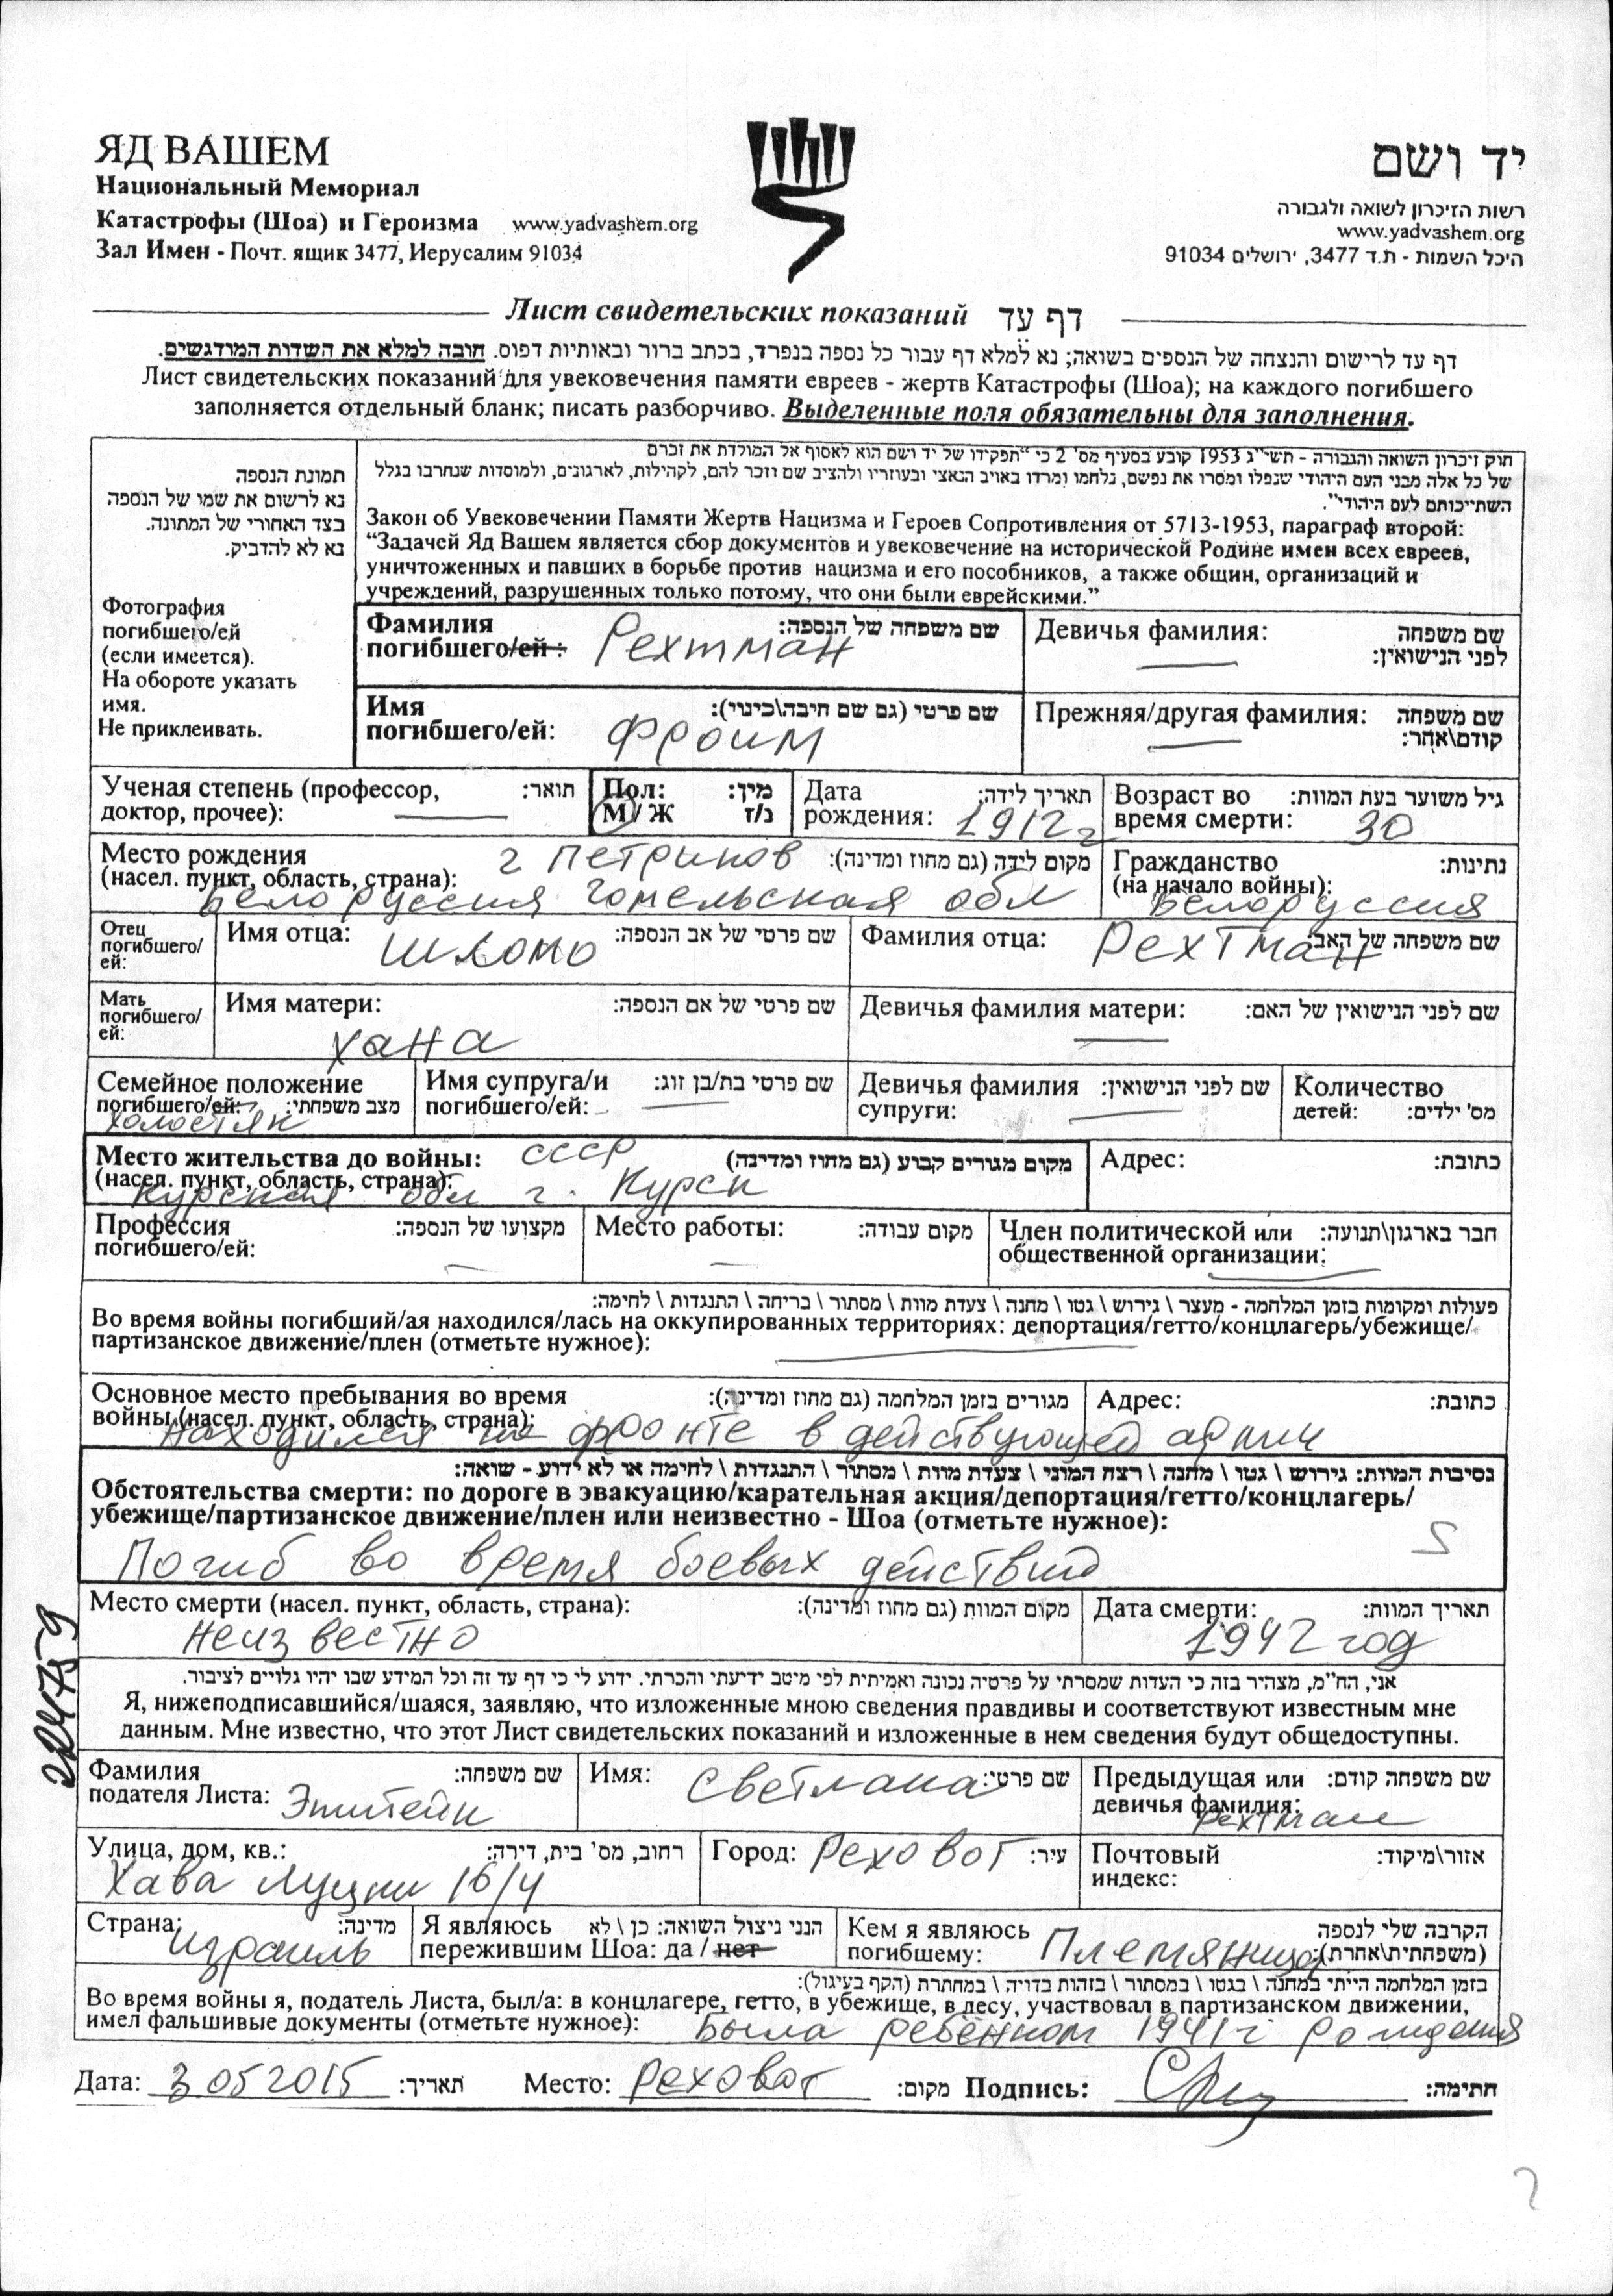 ЯД ВАШЕМ
Национальный Мемориал
Катастрофы (Шоа) и Героизма www.yadvashem.org
Зал Имен - Почт. ящик 3477, Иерусалим 91034
יד ושם
רשות הזיכרון לשואה ולגבורה
www.yadvashem.org
היכל השמות - ת.ד 3477, ירושלים 91034
Лист свидетельских показаний דף עד
דף עד לרישום והנצחה של הנספים בשואה; נא למלא דף עבור כל נספה בנפרד, בכתב ברור ובאותיות דפוס. חובה למלא את השדות המודגשים.
Лист свидетельских показаний для увековечения памяти евреев - жертв Катастрофы (Шоа); на каждого погибшего
заполняется отдельный бланк; писать разборчиво. Выделенные поля обязательны для заполнения.
תמונת הנספה
נא לרשום את שמו של הנספה
בצד האחורי של המתונה.
נא לא להדביק.
Фотография
погибшего/ей
(если имеется).
На обороте указать
имя.
Не приклеивать.
חוק זיכרון השואה והגבורה - תשי"ג 1953 קובע בסעיף מס' 2 כי "תפקידו של יד ושם הוא לאסוף אל המולדת את זכרם
של כל אלה מבני העם היהודי שנפלו ומסרו את נפשם, נלחמו ומרדו באויב הנאצי ובעוזריו ולהציב שם וזכר להם, לקהילות, לארגונים, ולמוסדות שנחרבו בגלל
השתייכותם לעם היהודי".
Закон об Увековечении Памяти Жертв Нацизма и Героев Сопротивления от 5713-1953, параграф второй:
“Задачей Яд Вашем является сбор документов и увековечение на исторической Родине имен всех евреев,
уничтоженных и павших в борьбе против нацизма и его пособников, а также общин, организаций и
учреждений, разрушенных только потому, что они были еврейскими.”
Фамилия שם משפחה של הנספה:
погибшего/ей: Рехтман
Девичья фамилия: שם משפחה
לפני הנישואין:
Имя שם פרטי (גם שם חיבה\כינוי):
погибшего/ей: Фроим
Прежняя/другая фамилия: שם משפחה
קודם\אחר:
Ученая степень (профессор, תואר:
доктор, прочее):
Пол: מין:
М / Ж נ/ז
Дата תאריך לידה:
рождения: 1912 г
Возраст во גיל משוער בעת המוות:
время смерти: 30
Место рождения г Петриков מקום לידה (גם מחוז ומדינה):
(насел. пункт, область, страна):
Белоруссия Гомельская обл
Гражданство נתינות:
(на начало войны):
Белоруссия
Отец
погибшего/
ей:
Имя отца: שם פרטי של אב הנספה:
Шломо
Фамилия отца: שם משפחה של האב:
Рехтман
Мать
погибшего/
ей:
Имя матери: שם פרטי של אם הנספה:
Хана
Девичья фамилия матери: שם לפני הנישואין של האם:
Семейное положение
погибшего/ей: מצב משפחתי:
холостяк
Имя супруга/и שם פרטי בת/בן זוג:
погибшего/ей:
Девичья фамилия שם לפני הנישואין:
супруги:
Количество
детей: מס' ילדים:
Место жительства до войны: СССР מקום מגורים קבוע (גם מחוז ומדינה)
(насел. пункт, область, страна):
Курская обл г. Курск
Адрес: כתובת:
Профессия מקצועו של הנספה:
погибшего/ей:
Место работы: מקום עבודה:
Член политической или חבר בארגון\תנועה:
общественной организации:
פעולות ומקומות בזמן המלחמה - מעצר \ גירוש \ גטו \ מחנה \ צעדת מוות \ מסתור \ בריחה \ התנגדות \ לחימה:
Во время войны погибший/ая находился/лась на оккупированных территориях: депортация/гетто/концлагерь/убежище/
партизанское движение/плен (отметьте нужное):
Основное место пребывания во время מגורים בזמן המלחמה (גם מחוז ומדינה):
войны (насел. пункт, область, страна):
Адрес: כתובת:
Находился на фронте в действующей армии
נסיבות המוות: גירוש \ גטו \ מחנה \ רצח המוני \ צעדת מוות \ מסתור \ התנגדות \ לחימה או לא ידוע - שואה:
Обстоятельства смерти: по дороге в эвакуацию/карательная акция/депортация/гетто/концлагерь/
убежище/партизанское движение/плен или неизвестно - Шоа (отметьте нужное):
Погиб во время боевых действий
Место смерти (насел. пункт, область, страна): מקום המוות (גם מחוז ומדינה):
неизвестно
Дата смерти: תאריך המוות:
1942 год
אני, הח"מ, מצהיר בזה כי העדות שמסרתי על פרטיה נכונה ואמיתית לפי מיטב ידיעתי והכרתי. ידוע לי כי דף עד זה וכל המידע שבו יהיו גלויים לציבור.
Я, нижеподписавшийся/шаяся, заявляю, что изложенные мною сведения правдивы и соответствуют известным мне
данным. Мне известно, что этот Лист свидетельских показаний и изложенные в нем сведения будут общедоступны.
224759
Фамилия שם משפחה:
подателя Листа: Эпштейн
Имя: Светлана שם פרטי:
Предыдущая или שם משפחה קודם:
девичья фамилия:
Рехтман
Улица, дом, кв.: רחוב, מס' בית, דירה:
Хава Луцки 16/4
Город: Реховот עיר:
Почтовый אזור\מיקוד:
индекс:
Страна: מדינה:
Израиль
Я являюсь הנני ניצול השואה: כן \ לא
пережившим Шоа: да / нет
Кем я являюсь הקרבה שלי לנספה
погибшему: Племянница (משפחתית\אחרת):
בזמן המלחמה הייתי במחנה \ בגטו \ במסתור \ בזהות בדויה \ במחתרת (הקף בעיגול):
Во время войны я, податель Листа, был/а: в концлагере, гетто, в убежище, в лесу, участвовал в партизанском движении,
имел фальшивые документы (отметьте нужное): была ребёнком 1941 г рождения
Дата: 3 05 2015 תאריך: Место: Реховот מקום: Подпись: חתימה: